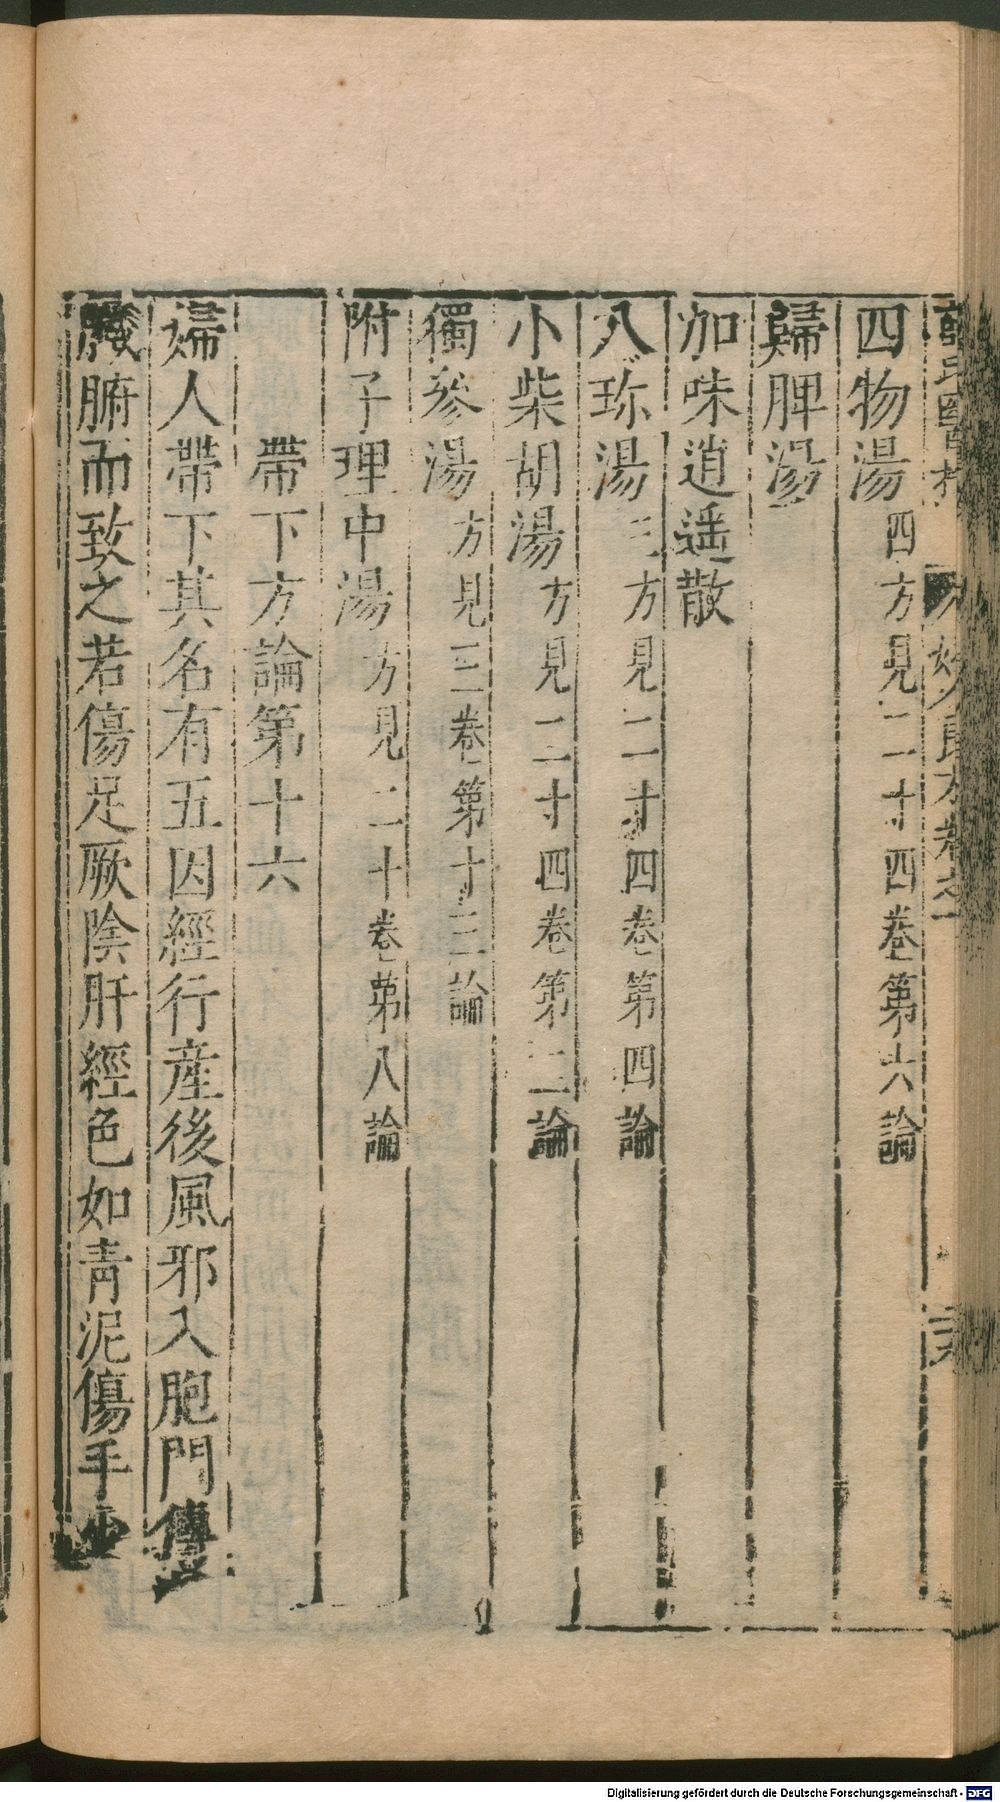 薛氏醫按 婦人良方卷之一 二六
四物湯四方見二十四卷第六論
歸脾湯
加味逍遥散
八珎湯三方見二十四卷第四論
小柴胡湯方見二十四卷第二論
獨參湯方見三卷第十三論
附子理中湯方見二十卷第八論
帶下方論第十六
婦人帶下其名有五因經行産後風邪入胞門傳
臟腑而致之若傷足厥陰肝經色如靑泥傷手少
Digitalisierung gefördert durch die Deutsche Forschungsgemeinschaft - DFG